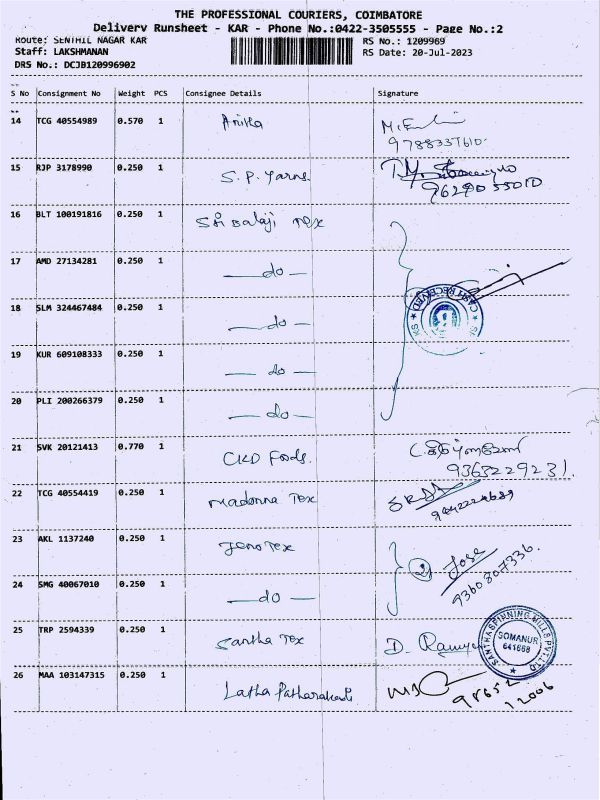 THE PROFESSIONAL COURIERS, COIMBATORE
Delivery Runsheet - KAR - Phone No.:0422-3505555 - Page No.:2
Route: SENTHIL NAGAR KAR
RS No.: 1209969
Staff: LAKSHMANAN
RS Date: 20-Jul-2023
DRS No.: DCJB120996902
S No Consignment No Weight PCS Consignee Details Signature
14 TCG 40554989 0.570 1 Anitha
15 RJP 3178990 0.250 1 S.P. Yarns
96290 55010
16 BLT 100191816 0.250 1 Sri Balaji Tex
17 AMD 27134281 0.250 1 — do —
18 SLM 324467484 0.250 1 — do —
19 KUR 609108333 0.250 1 — do —
20 PLI 200266379 0.250 1 — do —
21 SVK 20121413 0.770 1 CKD Foods
9363229231.
22 TCG 40554419 0.250 1 Madonna Tex
23 AKL 1137240 0.250 1 Jeno Tex
2 Jose
9360807336.
24 SMG 40067010 0.250 1 — do —
25 TRP 2594339 0.250 1 Santha Tex D.
SANTHA SPINNING MILLS PVT. LTD
SOMANUR
641668
26 MAA 103147315 0.250 1 Latha
98652
12006